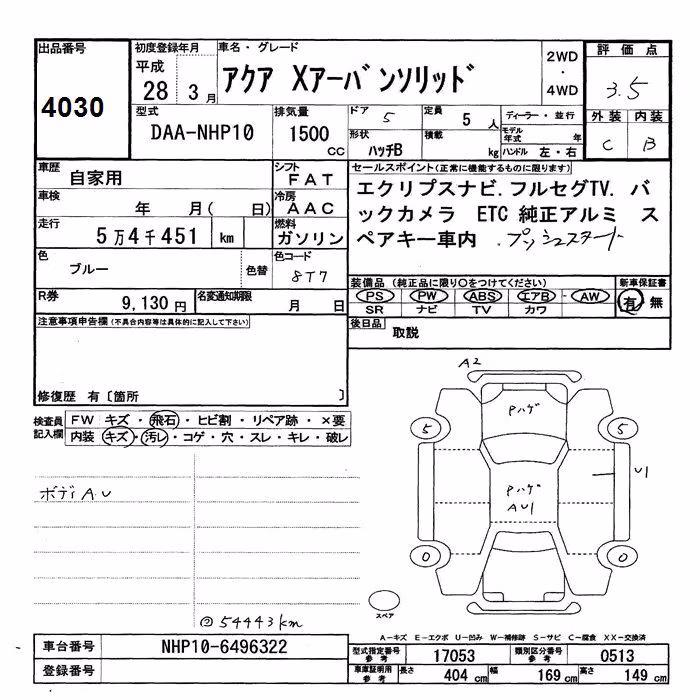 出品番号 初度登録年月 車名・グレード 2WD・4WD 評価点
4030 平成28 3月 アクア Xアーバンソリッド 3.5
型式 排気量 ドア 5 定員 5人 ディーラー・並行 外装 内装
DAA-NHP10 1500cc 形状 ハッチB 積載 kg モデル年式 年 C B
ハンドル 左・右
車歴 自家用 シフト FAT セールスポイント(正常に機能するものに限ります)
車検 年 月( 日) 冷房 AAC エクリプスナビ.フルセグTV. バ
走行 5万4千451 km 燃料 ガソリン ックカメラ ETC 純正アルミ ス
ペアキー車内 .プッシュスタート
色 ブルー 色替 色コード 8T7
装備品(純正品に限り○をつけてください) 新車保証書
R券 9,130円 名変通知期限 月 日 PS PW ABS エアB - AW 有 無
SR ナビ TV カワ
注意事項申告欄(不具合内容等は具体的に記入して下さい) 後日品 取説
修復歴 有〔箇所 〕
検査員記入欄 FW キズ・飛石・ヒビ割・リペア跡・×要
内装 キズ・汚レ・コゲ・穴・スレ・キレ・破レ
A2
Pハゲ
5 5
ボディA.U
Pハゲ
AU1
U1
0 0
スペア
@54443km
A-キズ E-エクボ U-凹み W-補修跡 S-サビ C-腐食 XX-交換済
車台番号 NHP10-6496322 型式指定番号 参考 17053 類別区分番号 参考 0513
登録番号 車庫証明用 参考 長さ 404cm 幅 169cm 高さ 149cm